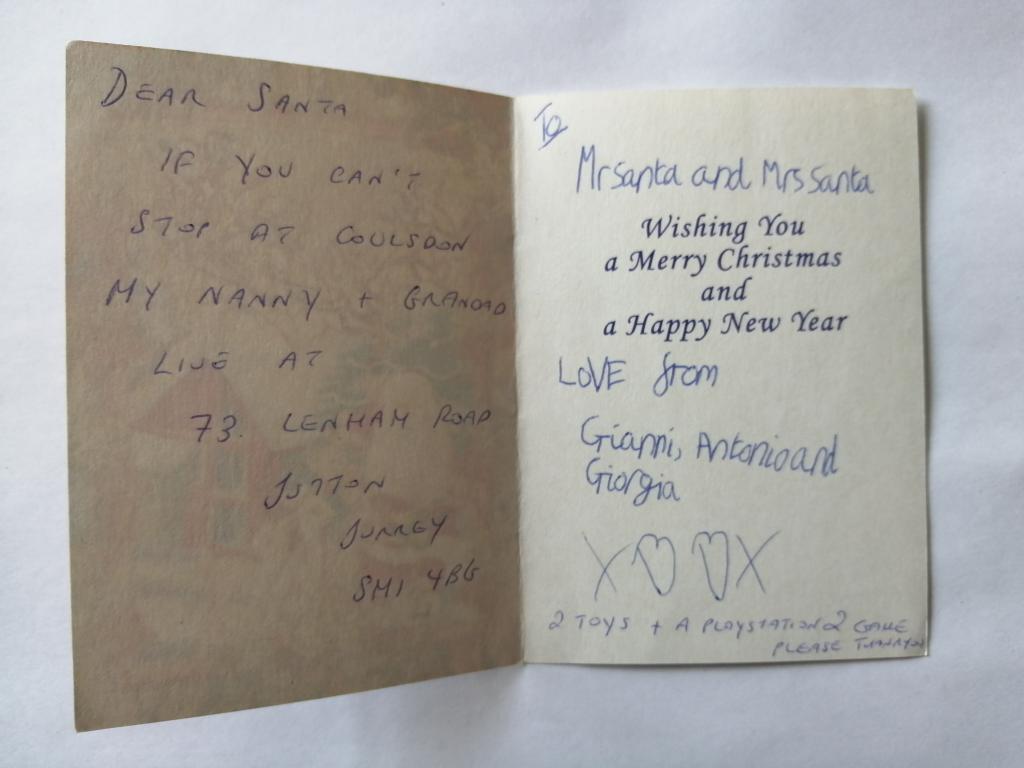 DEAR SANTA
IF YOU CAN'T
STOP AT COULSDON
MY NANNY + GRANDAD
LIVE AT
73. LENHAM ROAD
SUTTON
SURREY
SM1 4BG
To
Mr Santa and Mrs Santa
Wishing You
a Merry Christmas
and
a Happy New Year
LOVE from
Gianni, Antonio and
Giorgia
X♡♡X
2 TOYS + A PLAYSTATION 2 GAME
PLEASE THANKYOU